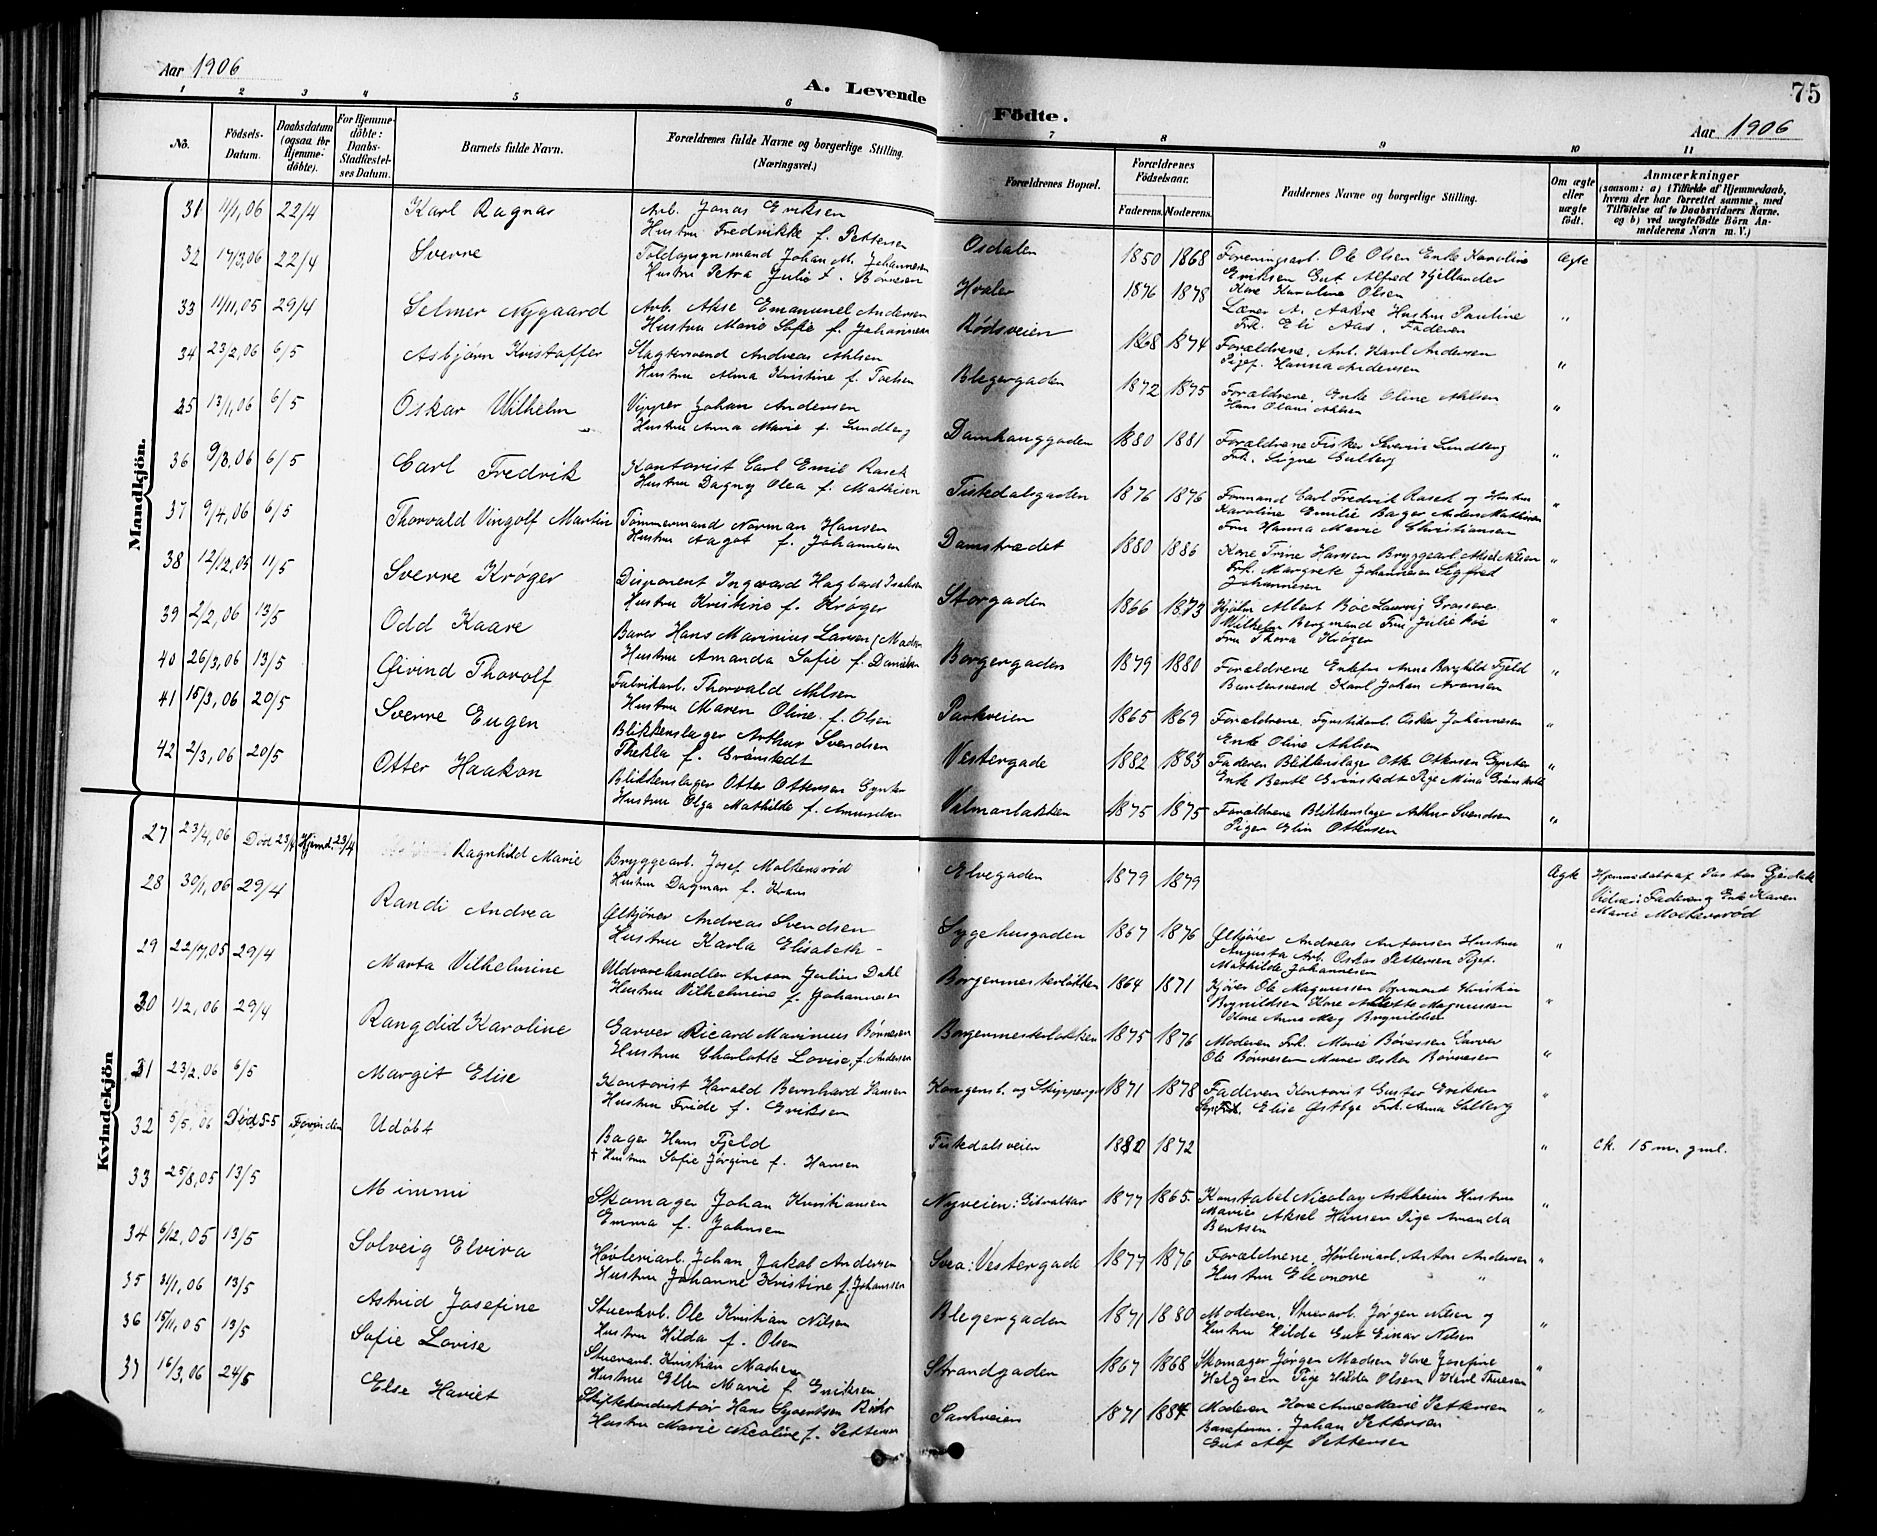 Aar 1906
A. Levende
Födte.
75
Aar 1906
1 2 3 4 5 6 7 8 9 10 11
No.
Födsels-Datum.
Daabsdatum (ogsaa for Hjemmedöbte).
For Hjemmedöbte: Daabs-Stadfæstelses Datum.
Barnets fulde Navn.
Forældrenes fulde Navne og borgerlige Stilling. (Næringsvei.)
Forældrenes Bopæl.
Forældrenes Födselsaar.
Faderens. Moderens.
Faddernes Navne og borgerlige Stilling.
Om ægte eller uægte födt.
Anmærkninger (saasom: a) i Tilfælde af Hjemmedaab, hvem der har forrettet samme, med Tilföielse af to Daabsvidners Navne, og b) ved uægtefödte Börn Anmelderens Navn m. V.)
Mandkjön.
31 11/1, 06 22/4 Karl Ragnar Arb. Jonas Eriksen Osdalen 1850 1868 Foreningsarb. Ole Olsen Enke Karoline Ægte
Hustru Fredrikke f. Pettersen Eriksen Gut Alfred Hjellander
32 17/3, 06 22/4 Sverre Toldopsynsmand Johan M. Johannesen Hvaler 1876 1878 Kone Karoline Olsen "
Hustru Petra Julie f. Lærer A. Aakre Hustru Pauline
33 11/11, 05 29/4 Selmer Nygaard Arb. Akse Emanuel Andersen Rødsveien 1868 1874 Frk. Eli Aas, Faderen
Hustru Marie Sofie f. Johannesen Forældrene, Arb. Karl Andersen "
34 23/2, 06 6/5 Asbjørn Kristoffer Slagtersvend Andreas Ahlsen Blegergaden 1872 1875 Pigef. Hanna Andersen
Hustru Alma Kristine f. Forældrene, Enke Oline Ahlsen "
Hans Olaus Ahlsen
35 13/1, 06 6/5 Oskar Wilhelm Vipper Johan Andersen Damhauggaden 1880 1881 Forældrene Fisker Severin Lundberg "
Hustru Anna Marie f. Lundberg Frk. Signe Gulberg
36 9/3, 06 6/5 Carl Fredrik Kontorist Carl Emil Rasch Tistedalsgaden 1876 1876 Formand Carl Fredrik Rasch og Hustru "
Hustru Dagny Olea f. Mathisen Karoline Emilie Bager Anders Mathisen
Fru Hanna Marie Christiansen
37 9/4, 06 6/5 Thorvald Vingolf Martin Tømmermand Norman Hansen Damstrædet 1880 1886 Kone Trine Hansen Bryggearb. Aksel Nilsen "
Hustru Aagot f. Johannesen Frk. Margrete Johannesen Sigfred
Johannesen
38 12/12, 05 11/5 Sverre Krøger Disponent Ingvard Hagbard Isaksen Storgaden 1866 1873 Albert Bøe Laurvig Grosserer "
Hustru Kristine f. Krøger Wilhelm Bergmand Fru Julie Bøe
Fru Thora Krøger
39 2/2, 06 13/5 Odd Kaare Hans Marinius Larsen Borgergaden 1879 1880 Forældrene Enkefru Anna Borghild Fjeld "
Hustru Amanda Sofie f. Danielsen Karl Johan Aronsen
40 26/3, 06 13/5 Øivind Thorolf Fabrikarb. Thorvald Ahlsen Parkveien 1865 1869 Forældrene, Fyrstikarb. Oskar Johannesen "
Hustru Maren Oline f. Olsen Enke Oline Ahlsen
41 15/3, 06 20/5 Sverre Eugen Blikkenslager Arthur Svendsen Vestergade 1882 1883 Faderen Blikkenslager Otto Ottersen Gynter "
Thekla f. Grønstedt Enke Bertte Grønstedt Pige Mina Grønstedt
42 2/3, 06 20/5 Otter Haakon Blikkenslager Otter Ottersen Gynter Valmarløkken 1875 1875 Forældrene Blikkenslager Arthur Svendsen "
Hustru Olga Mathilde f. Amundsen Pigen Elin Ottersen
Kvindekjön
27 23/4, 06 Død 23/4 Hjemd. 23/4 Ragnhild Marie Bryggearb. Josef Moltensrød Elvegaden 1879 1879 Ægte
Hustru Dagmar f. Krans Vidner: Faderen og Enke Karen
Marie Moltensrød
28 30/1, 06 29/4 Randi Andrea Ølkjører Andreas Svendsen Sygehusgaden 1867 1876 Ølkjører Andreas Antonsen Hustru "
Hustru Karla Elisabeth - Augusta Arb. Oskar Pettersen Pigef.
Mathilde Johannesen
29 22/7, 05 29/4 Marta Vilhelmine Uldvarehandler Anton Julius Dahl Borgermesterløkken 1864 1871 Kjører Ole Magnussen Kristian "
Hustru Vilhelmine f. Johannesen Brynildsen Kone Magnussen
Kone Anna Brynildsen
30 1/2, 06 29/4 Rangdid Karoline Garver Ricard Marinius Børresen Borgermesterløkken 1875 1876 Moderen Frk. Marie Børresen Garver "
Hustru Charlotte Lovise f. Andersen Ole Børresen Murer Oskar Børresen
31 23/2, 06 6/5 Margit Elise Kontorist Harald Bernhard Hansen Kongenst. og Skippergd 1871 1878 Faderen Kontorist Gustav Eriksen "
Hustru Fride f. Eriksen Frk. Elise Østbye Frk. Anna Solberg
32 5/5, 06 Død 5-5 Udøbt Bager Hans Fjeld Tistedalsveien 1880 1872 " ck. 15 m. gml.
† Hustru Sofie Jørgine f. Hansen
33 25/8, 05 13/5 Mimmi Skomager Johan Kristiansen Nyveien: Gibraltar 1877 1865. Konstabel Nicolay Askheim Hustru "
Emma f. Johnsen Marie Aksel Hansen Pige Amanda
Bentsen
34 6/12, 05 13/5 Solveig Elvira Høvleriarb. Johan Jakob Andersen Svea: Vestergade 1877 1876 Forældrene, Høvleriarb. Anton Andersen "
Hustru Johanne Kristine f. Johansen Hustru Eleonore "
35 31/1, 06 13/5 Astrid Josefine Stuerarb. Ole Kristian Nilsen Blegergaden 1871 1880 Moderen, Stuerarb. Jørgen Nilsen og "
Hustru Hilda f. Olsen Hustru Hilda Gut Einar Nilsen
36 15/11, 05 13/5 Sofie Lovise Stuerarb. Kristian Madsen Strandgaden 1867 1868 Skomager Jørgen Madsen Kone Josefine "
Hustru Ellen Marie f. Eriksen Helgesen Pige Hilda Olsen Karl Thuesen
37 16/3, 06 24/5 Else Hariet Skiftekonduktør Hans Parkveien 1871 1884 Moderen Kone Anne Marie Pettersen "
Hustru Marie Nicoline f. Pettersen Johan Pettersen
Gut Alf Pettersen